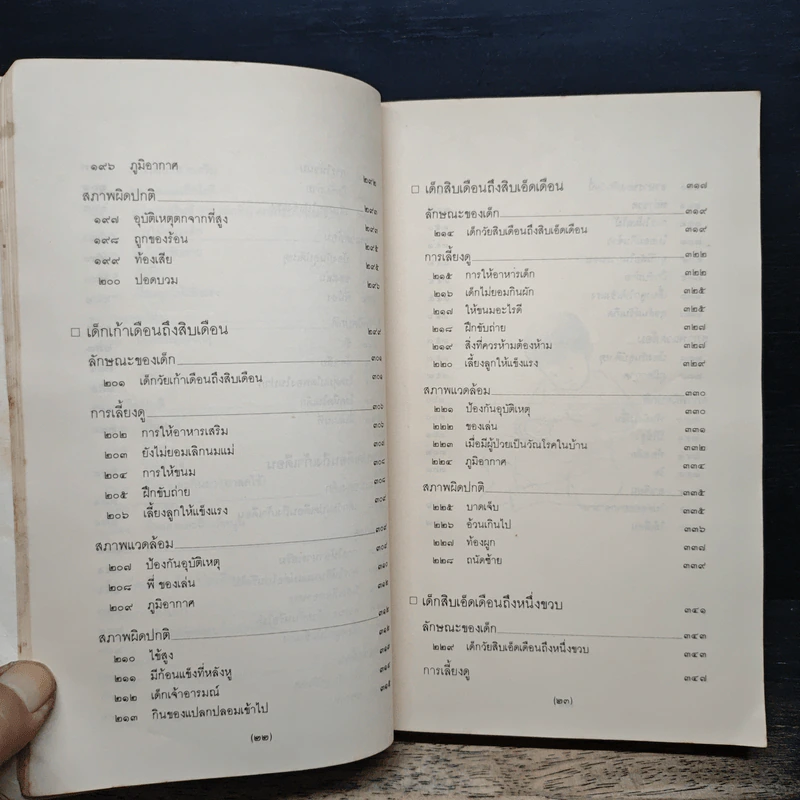 ๑๙๖ ภูมิอากาศ ๒๙๒
สภาพผิดปกติ ๒๙๓
๑๙๗ อุบัติเหตุตกจากที่สูง ๒๙๓
๑๙๘ ถูกของร้อน ๒๙๕
๑๙๙ ท้องเสีย ๒๙๕
๒๐๐ ปอดบวม ๒๙๖
□ เด็กเก้าเดือนถึงสิบเดือน ๒๙๙
ลักษณะของเด็ก ๓๐๑
๒๐๑ เด็กวัยเก้าเดือนถึงสิบเดือน ๓๐๑
การเลี้ยงดู
๒๐๒ การให้อาหารเสริม
๒๐๓ ยังไม่ยอมเลิกนมแม่
๒๐๔ การให้ขนม
๒๐๕ ฝึกขับถ่าย
๒๐๖ เลี้ยงลูกให้แข็งแรง
สภาพแวดล้อม
๒๐๗ ป้องกันอุบัติเหตุ
๒๐๘ พี่ ของเล่น
๒๐๙ ภูมิอากาศ
สภาพผิดปกติ
๒๑๐ ไข้สูง
๒๑๑ มีก้อนแข็งที่หลังหู
๒๑๒ เด็กเจ้าอารมณ์
๒๑๓ กินของแปลกปลอมเข้าไป
(๒๒)
□ เด็กสิบเดือนถึงสิบเอ็ดเดือน ๓๑๗
ลักษณะของเด็ก ๓๑๙
๒๑๔ เด็กวัยสิบเดือนถึงสิบเอ็ดเดือน ๓๑๙
การเลี้ยงดู ๓๒๒
๒๑๕ การให้อาหารเด็ก ๓๒๒
๒๑๖ เด็กไม่ยอมกินผัก ๓๒๕
๒๑๗ ให้ขนมอะไรดี ๓๒๕
๒๑๘ ฝึกขับถ่าย ๓๒๗
๒๑๙ สิ่งที่ควรห้ามต้องห้าม ๓๒๗
๒๒๐ เลี้ยงลูกให้แข็งแรง ๓๒๙
สภาพแวดล้อม ๓๓๐
๒๒๑ ป้องกันอุบัติเหตุ ๓๓๐
๒๒๒ ของเล่น ๓๓๑
๒๒๓ เมื่อมีผู้ป่วยเป็นวัณโรคในบ้าน ๓๓๒
๒๒๔ ภูมิอากาศ ๓๓๔
สภาพผิดปกติ ๓๓๕
๒๒๕ บาดเจ็บ ๓๓๕
๒๒๖ อ้วนเกินไป ๓๓๖
๒๒๗ ท้องผูก ๓๓๗
๒๒๘ ถนัดซ้าย ๓๓๙
□ เด็กสิบเอ็ดเดือนถึงหนึ่งขวบ ๓๔๑
ลักษณะของเด็ก ๓๔๓
๒๒๙ เด็กวัยสิบเอ็ดเดือนถึงหนึ่งขวบ ๓๔๓
การเลี้ยงดู ๓๔๗
(๒๓)